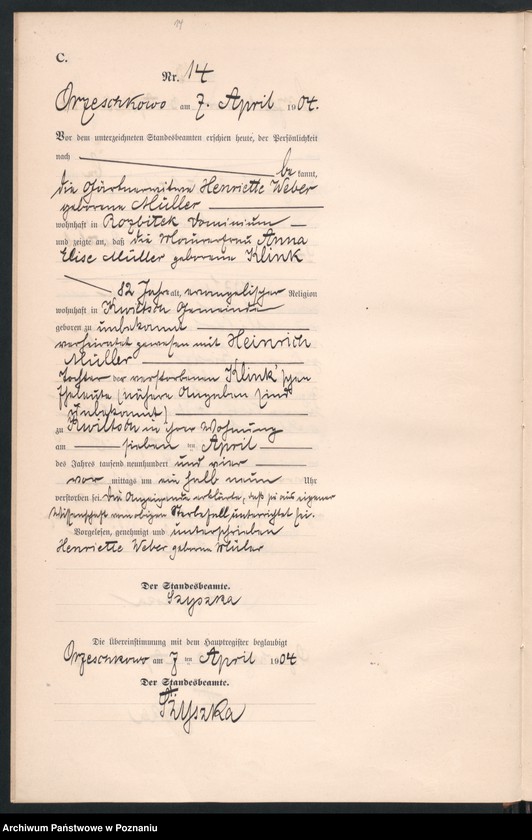 14
C.
Nr. 14
Orzeschkowo am 7. April 1904.
Vor dem unterzeichneten Standesbeamten erschien heute, der Persönlichkeit
nach be kannt,
die Gärtnerwitwe Henriette Weber
geborene Müller
wohnhaft in Rozbitek Dominium
und zeigte an, daß die Maurerfrau Anna
Elise Müller geborene Klink
82 Jahre alt, evangelischer Religion
wohnhaft in Kwiltsch Gemeinde
geboren zu unbekannt
verheiratet gewesen mit Heinrich
Müller
Tochter der verstorbenen Klink'schen
Eheleute (nähere Angaben sind
unbekannt)
zu Kwiltsch in ihrer Wohnung
am sieben ten April
des Jahres tausend neunhundert und vier
vor mittags um ein halb neun Uhr
verstorben sei. Die Anzeigende erklärte, daß sie aus eigener
Wissenschaft von obigen Sterbefall unterrichtet sei.
Vorgelesen, genehmigt und unterschrieben
Henriette Weber geborene Müller
Der Standesbeamte.
Szyszka
Die Übereinstimmung mit dem Hauptregister beglaubigt
Orzeschkowo am 7 ten April 1904
Der Standesbeamte.
Szyszka
Archiwum Państwowe w Poznaniu